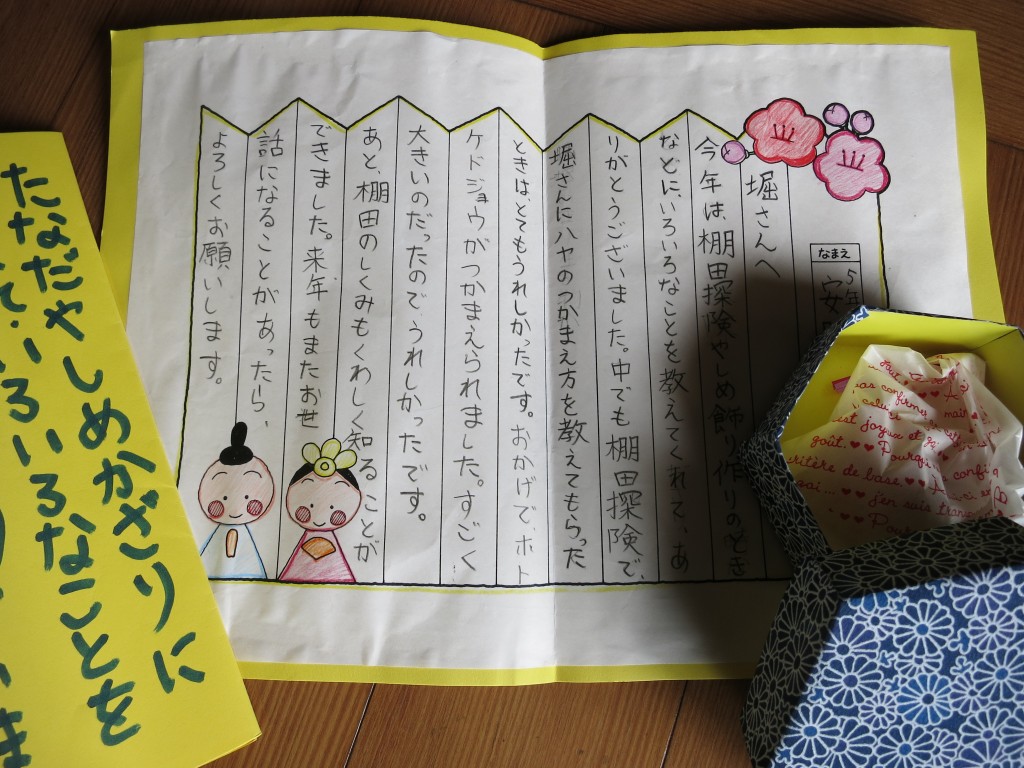 なまえ
5年
安
堀さんへ
今年は、棚田探険やしめ飾り作りのとき
などに、いろいろなことを教えてくれて、あ
りがとうございました。中でも棚田探険で、
堀さんにハヤのつかまえ方を教えてもらった
ときは、とてもうれしかったです。おかげで、ホト
ケドジョウがつかまえられました。すごく
大きいのだったので、うれしかったです。
あと、棚田のしくみもくわしく知ることが
できました。来年もまたお世
話になることがあったら、
よろしくお願いします。
たなだやしめかざりに
いろいろなことを